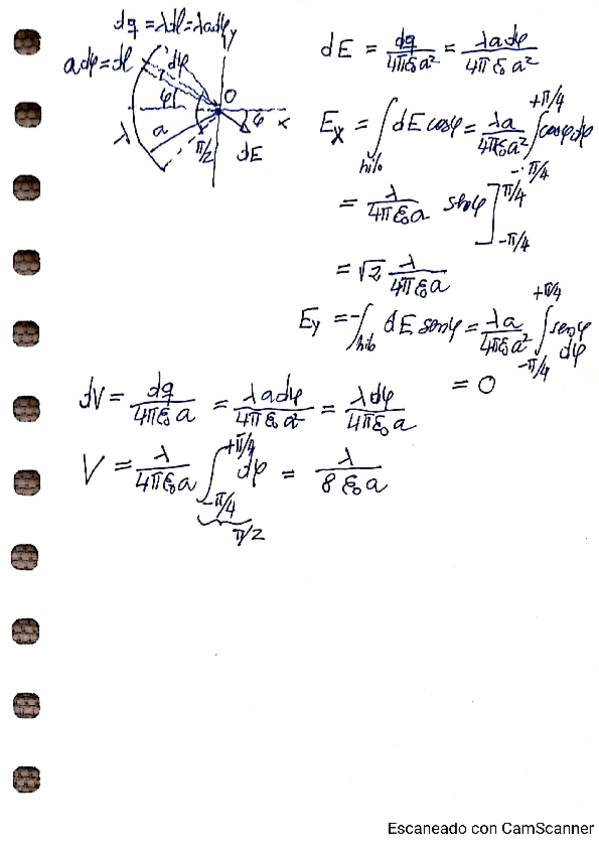 dq = λdl = λadφ
y
adφ = dl
dφ
φ
O
a
φ
x
λ
π/2
dE
dE = dq/4πε₀a² = λadφ/4πε₀a²
Eₓ = ∫hilo dE cosφ = λa/4πε₀a² ∫-π/4+π/4 cosφdφ
= λ/4πε₀a senφ]-π/4π/4
= √2 λ/4πε₀a
Ey = -∫hilo dE senφ = λa/4πε₀a² ∫-π/4+π/4 senφ dφ
= 0
dV = dq/4πε₀a = λadφ/4πε₀a² = λdφ/4πε₀a
V = λ/4πε₀a ∫-π/4+π/4 dφ = λ/8ε₀a
π/2
Escaneado con CamScanner